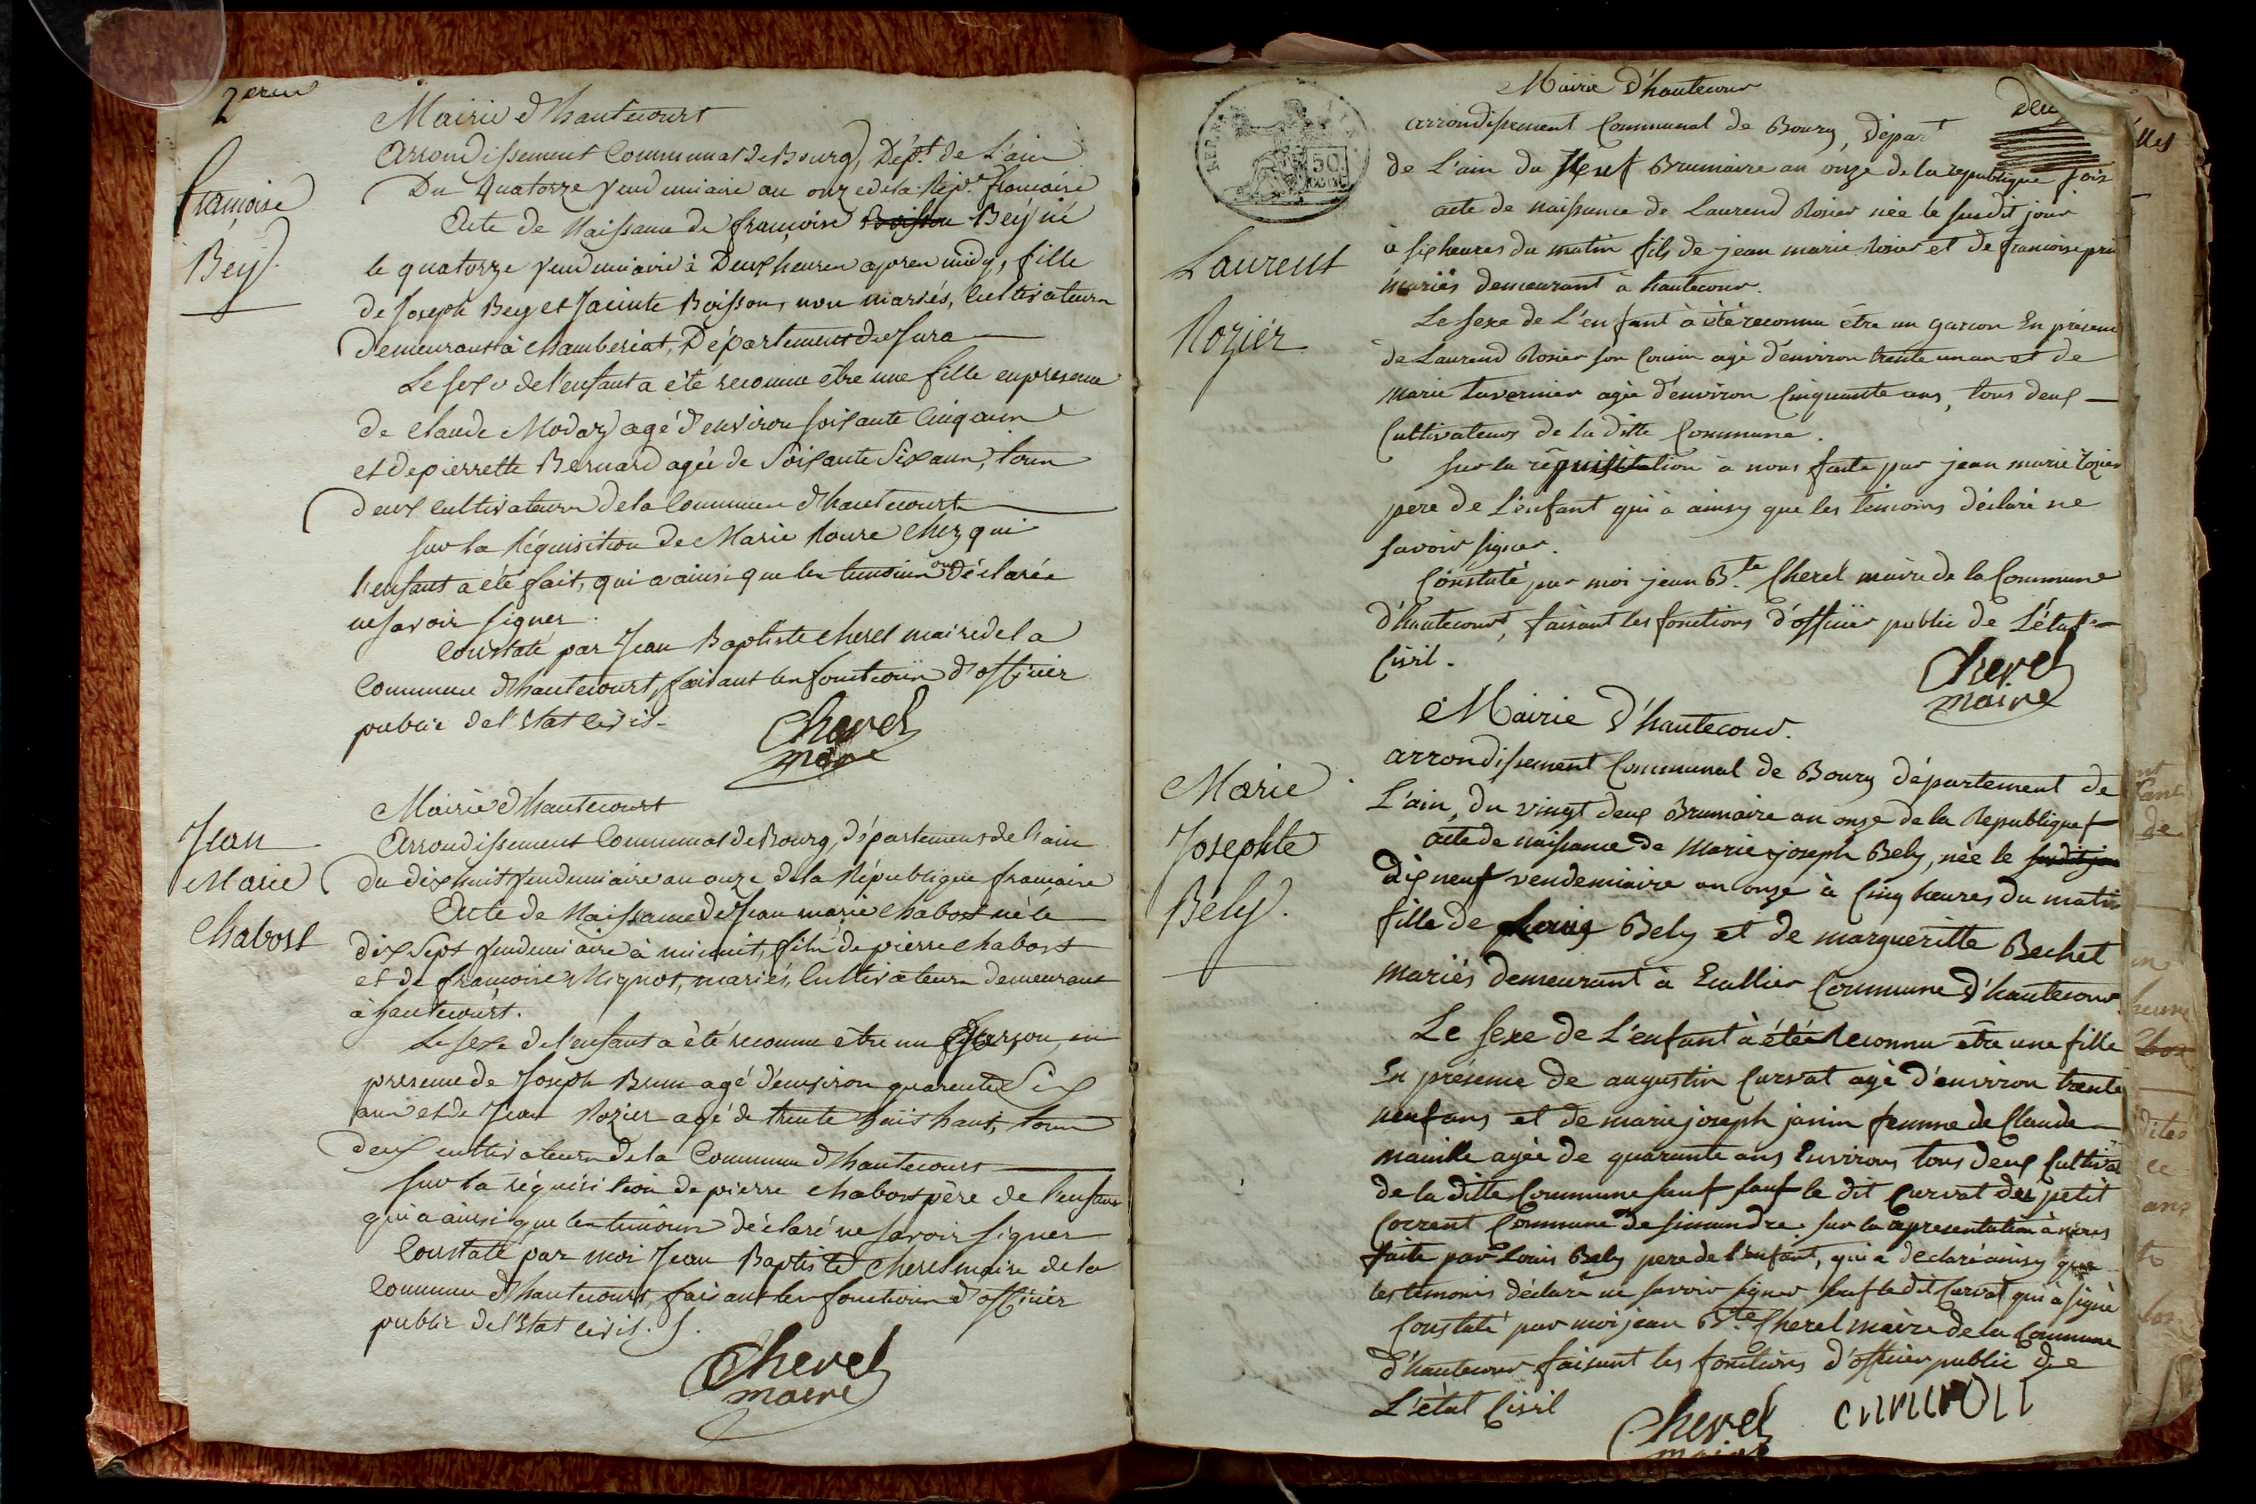 2eme
Mairie d'hautecourt
Arrondissement Communal de Bourg, Dépt de L'ain
Du quatorze Vendemiaire an onze de la Rép.e françoise
françoise
Bey
Acte de Naissance de françoise Boisson Bey née
le quatorze vendemiaire à Deux heures apres midy, fille
de Joseph Bey et Jacinte Boisson, non mariés, Cultivateurs
demeurant à chamberiat, Département du Jura
Le sexe de l'enfant a été reconnu être une fille en presence
de Claude Moday agé d'environ soisante cinq ans
et de pierrette Bernard agée de Soisante Six ans, tous
deux cultivateurs de la Commune d'hautecourt
sur la Réquisition de Marie Roure chez qui
l'enfant a été fait, qui a ainsi que les temoins ont déclarée
ne savoir signer.
Constaté par Jean Baptiste cherel maire de la
Commune d'hautecourt, faisant les fonctions d'officier
public de l'Etat civil.
Cherel
maire
Mairie d'hautecourt
Jean
Marie
Chabost
Arrondissement Communal de Bourg, département de l'ain
du dix huit Vendemiaire an onze de la République françoise
Acte de Naissance de Jean marie chabost né le
dix Sept Vendemiaire à minuit, fils de pierre chabost
et de françoise Mignot, mariés, Cultivateurs demeurant
à hautecourt.
Le sexe de l'enfant a été reconnu être un garçon, en
presence de Joseph Brun agé d'environ quarente Six
ans et de Jean Rozier agé de trente huit hans, tous
deux cultivateurs de la Commune d'hautecourt
sur la réquisition de pierre chabost père de l'enfant
qui a ainsi que les temoins déclaré ne savoir signer
Constaté par moi Jean Baptiste cherel maire de la
Commune d'hautecourt, faisant les fonctions d'officier
public de l'Etat civil.
Cherel
maire
50
Mairie d'hautecour
deux
arrondissement Communal de Bourg, départ
de L'ain du neuf Brumaire an onze de la republique fois
acte de naissance de Laurend Rosier née le susdit jour
à six heures du matin fils de jean marie Rosier et de francoise
mariés demeurant à hautecour.
Laurent
Rozier
Le sexe de L'enfant à été reconnu être un garçon En présence
de Laurend Rosier son Cousin agé d'environ trente un an et de
marie tavernier agée d'environ Cinquante ans, tous deux
Cultivateurs de la ditte Commune.
sur la réquisitation à nous faite par jean marie rozier
pere de L'enfant qui à ainsy que les témoins déclaré ne
savoir signer.
Constaté par moi jean B.te Cherel maire de la Commune
d'hautecour, faisant les fonctions d'officier public de L'état
Civil.
Cherel
maire
Mairie d'hautecour.
Marie
Josephte
Bely.
arrondissement Communal de Bourg département de
L'ain, du vingt deux Brumaire an onze de la Republique f
acte de naissance de Marie joseph Bely, née le susdit jour
dix neuf vendemiaire an onze à Cinq heures du matin
fille de Louis Bely et de margueritte Bechet
mariés demeurant à Commune d'hautecour
Le sexe de L'enfant à été Reconnu être une fille
En présence de augustin Curvat agé d'environ trente
neuf ans et de marie joseph janin femme de Claude
mainke agée de quarante ans Environs tous deux Cultivat
de la ditte Commune sauf sauf le dit Curvat der petit
Corrent Commune de simandre. sur la representation à nous
faite par Louis Bely pere de l'enfant, qui a declaré ainsy que
les temoins déclaré ne savoir signer sauf le dit Curvat qui à signé
Constaté par moi jean B.te Cherel maire de la Commune
d'hautecour faisant les fonctions d'officier public de
L'état Civil
Cherel
maire